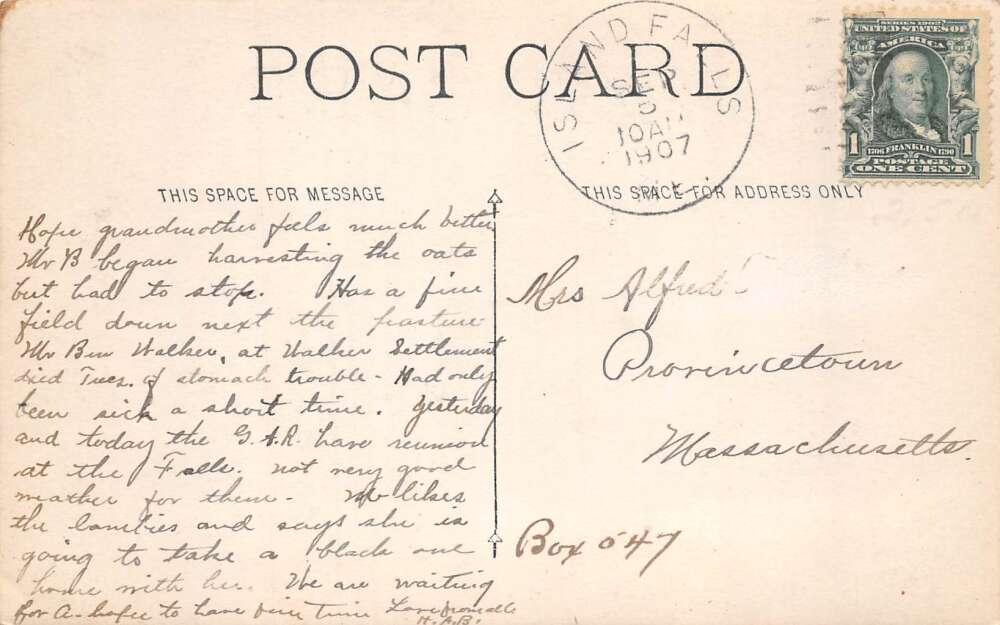 POST CARD
ISLAND FALLS
SEP
5
10AM
1907
ME.
SERIES 1902
UNITED STATES OF
AMERICA
1 1706 FRANKLIN 1790 1
POSTAGE
ONE CENT
THIS SPACE FOR MESSAGE
THIS SPACE FOR ADDRESS ONLY
Hope grandmother feels much better
Mr B began harvesting the oats
but had to stop. Has a fine
field down next the pasture
Mr Ben Walker, at Walker Settlement
died Tues. of stomach trouble - Had only
been sick a short time. Yesterday
and today the G.A.R. have reunion
at the Falls. not very good
weather for them -
likes
the and says she is
going to take a black one
home with her. We are waiting
for A- hope to have fine time Love from all
H.A.B.
Mrs Alfred
Provincetown
Massachusetts.
Box 547